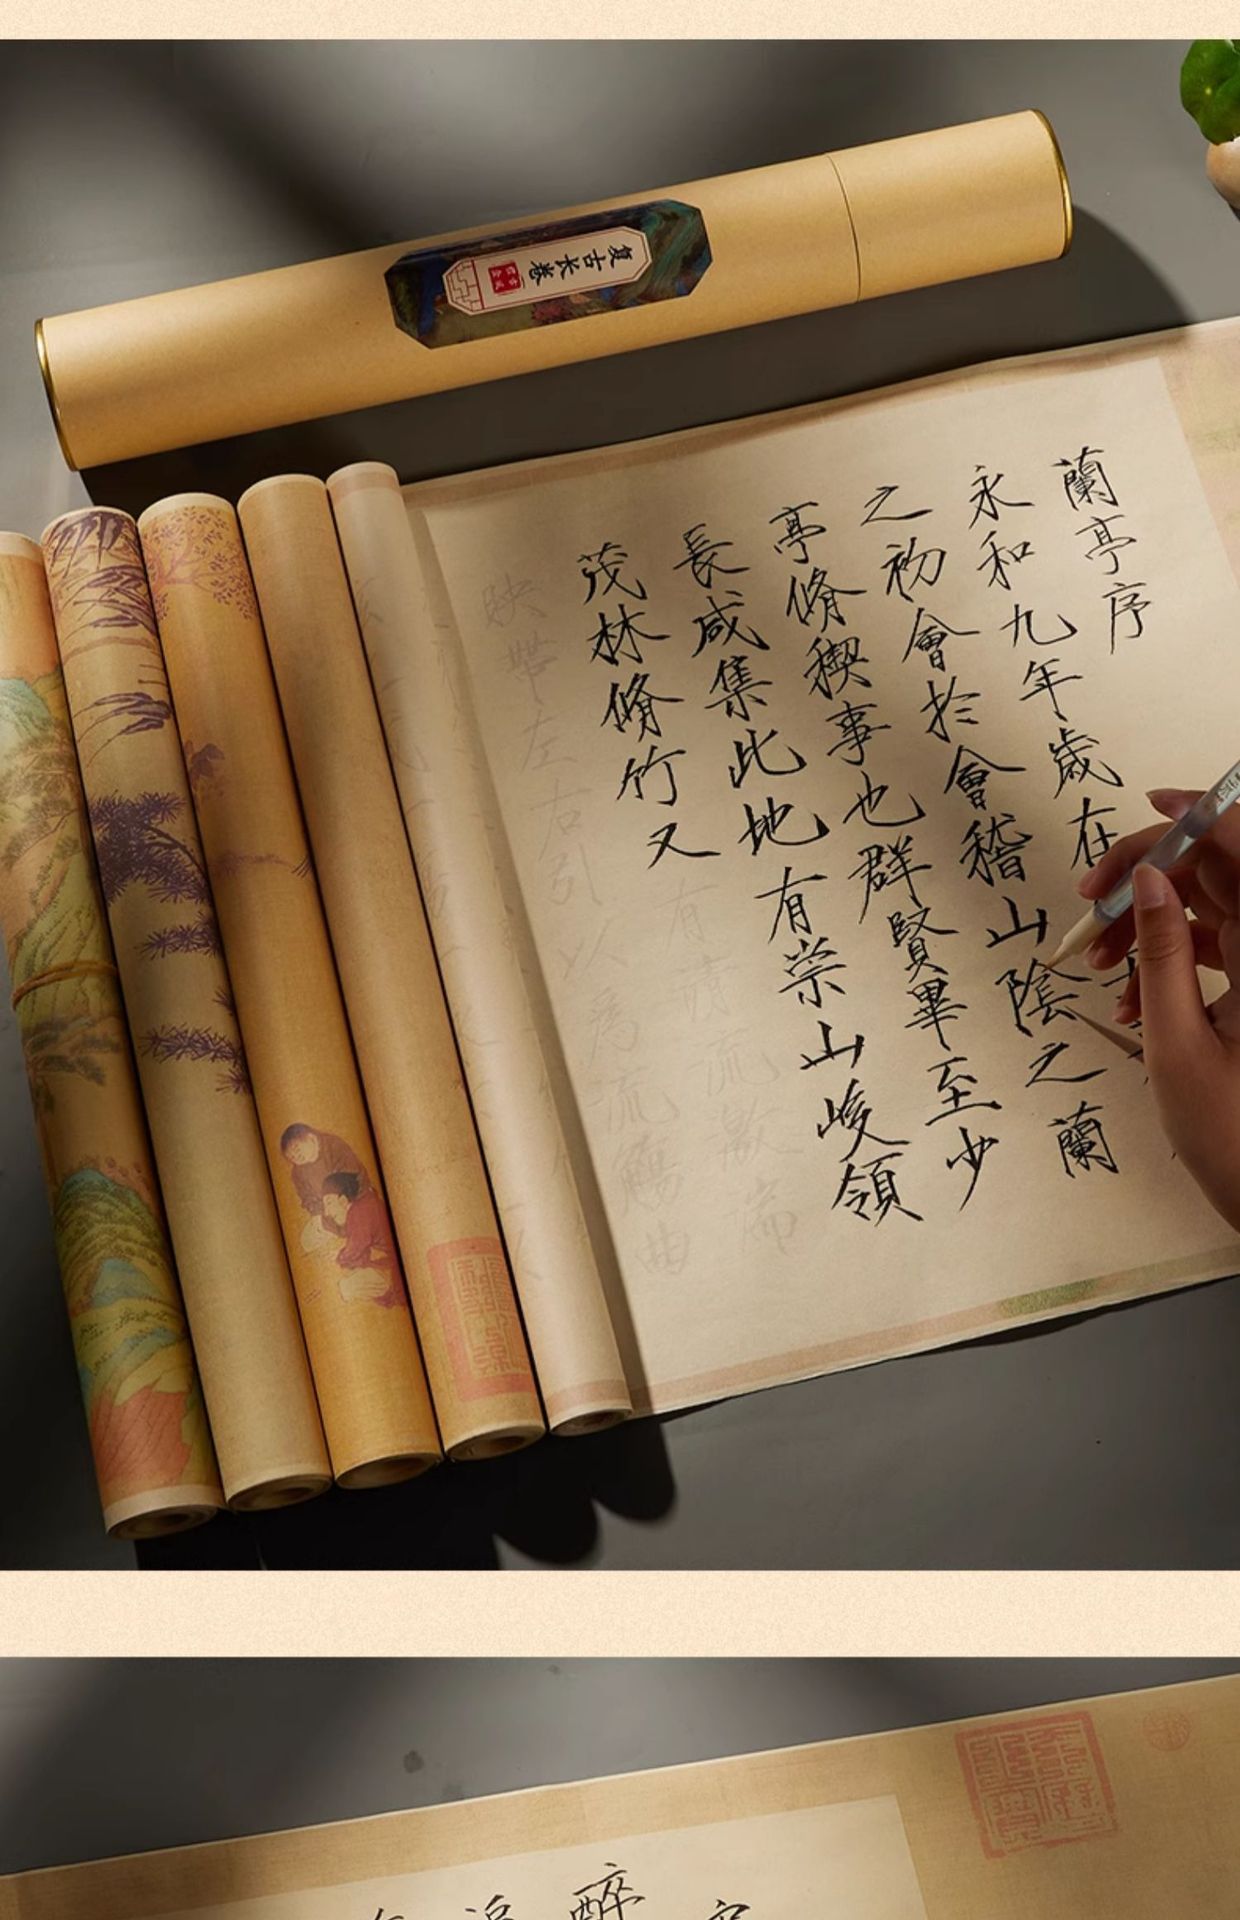 复古长卷
蘭亭序
永和九年歲在
之初會於會稽山陰之蘭
亭脩稧事也群賢畢至少
長咸集此地有崇山峻領
茂林脩竹又有清流激湍
映帶左右引以為流觴曲
醉